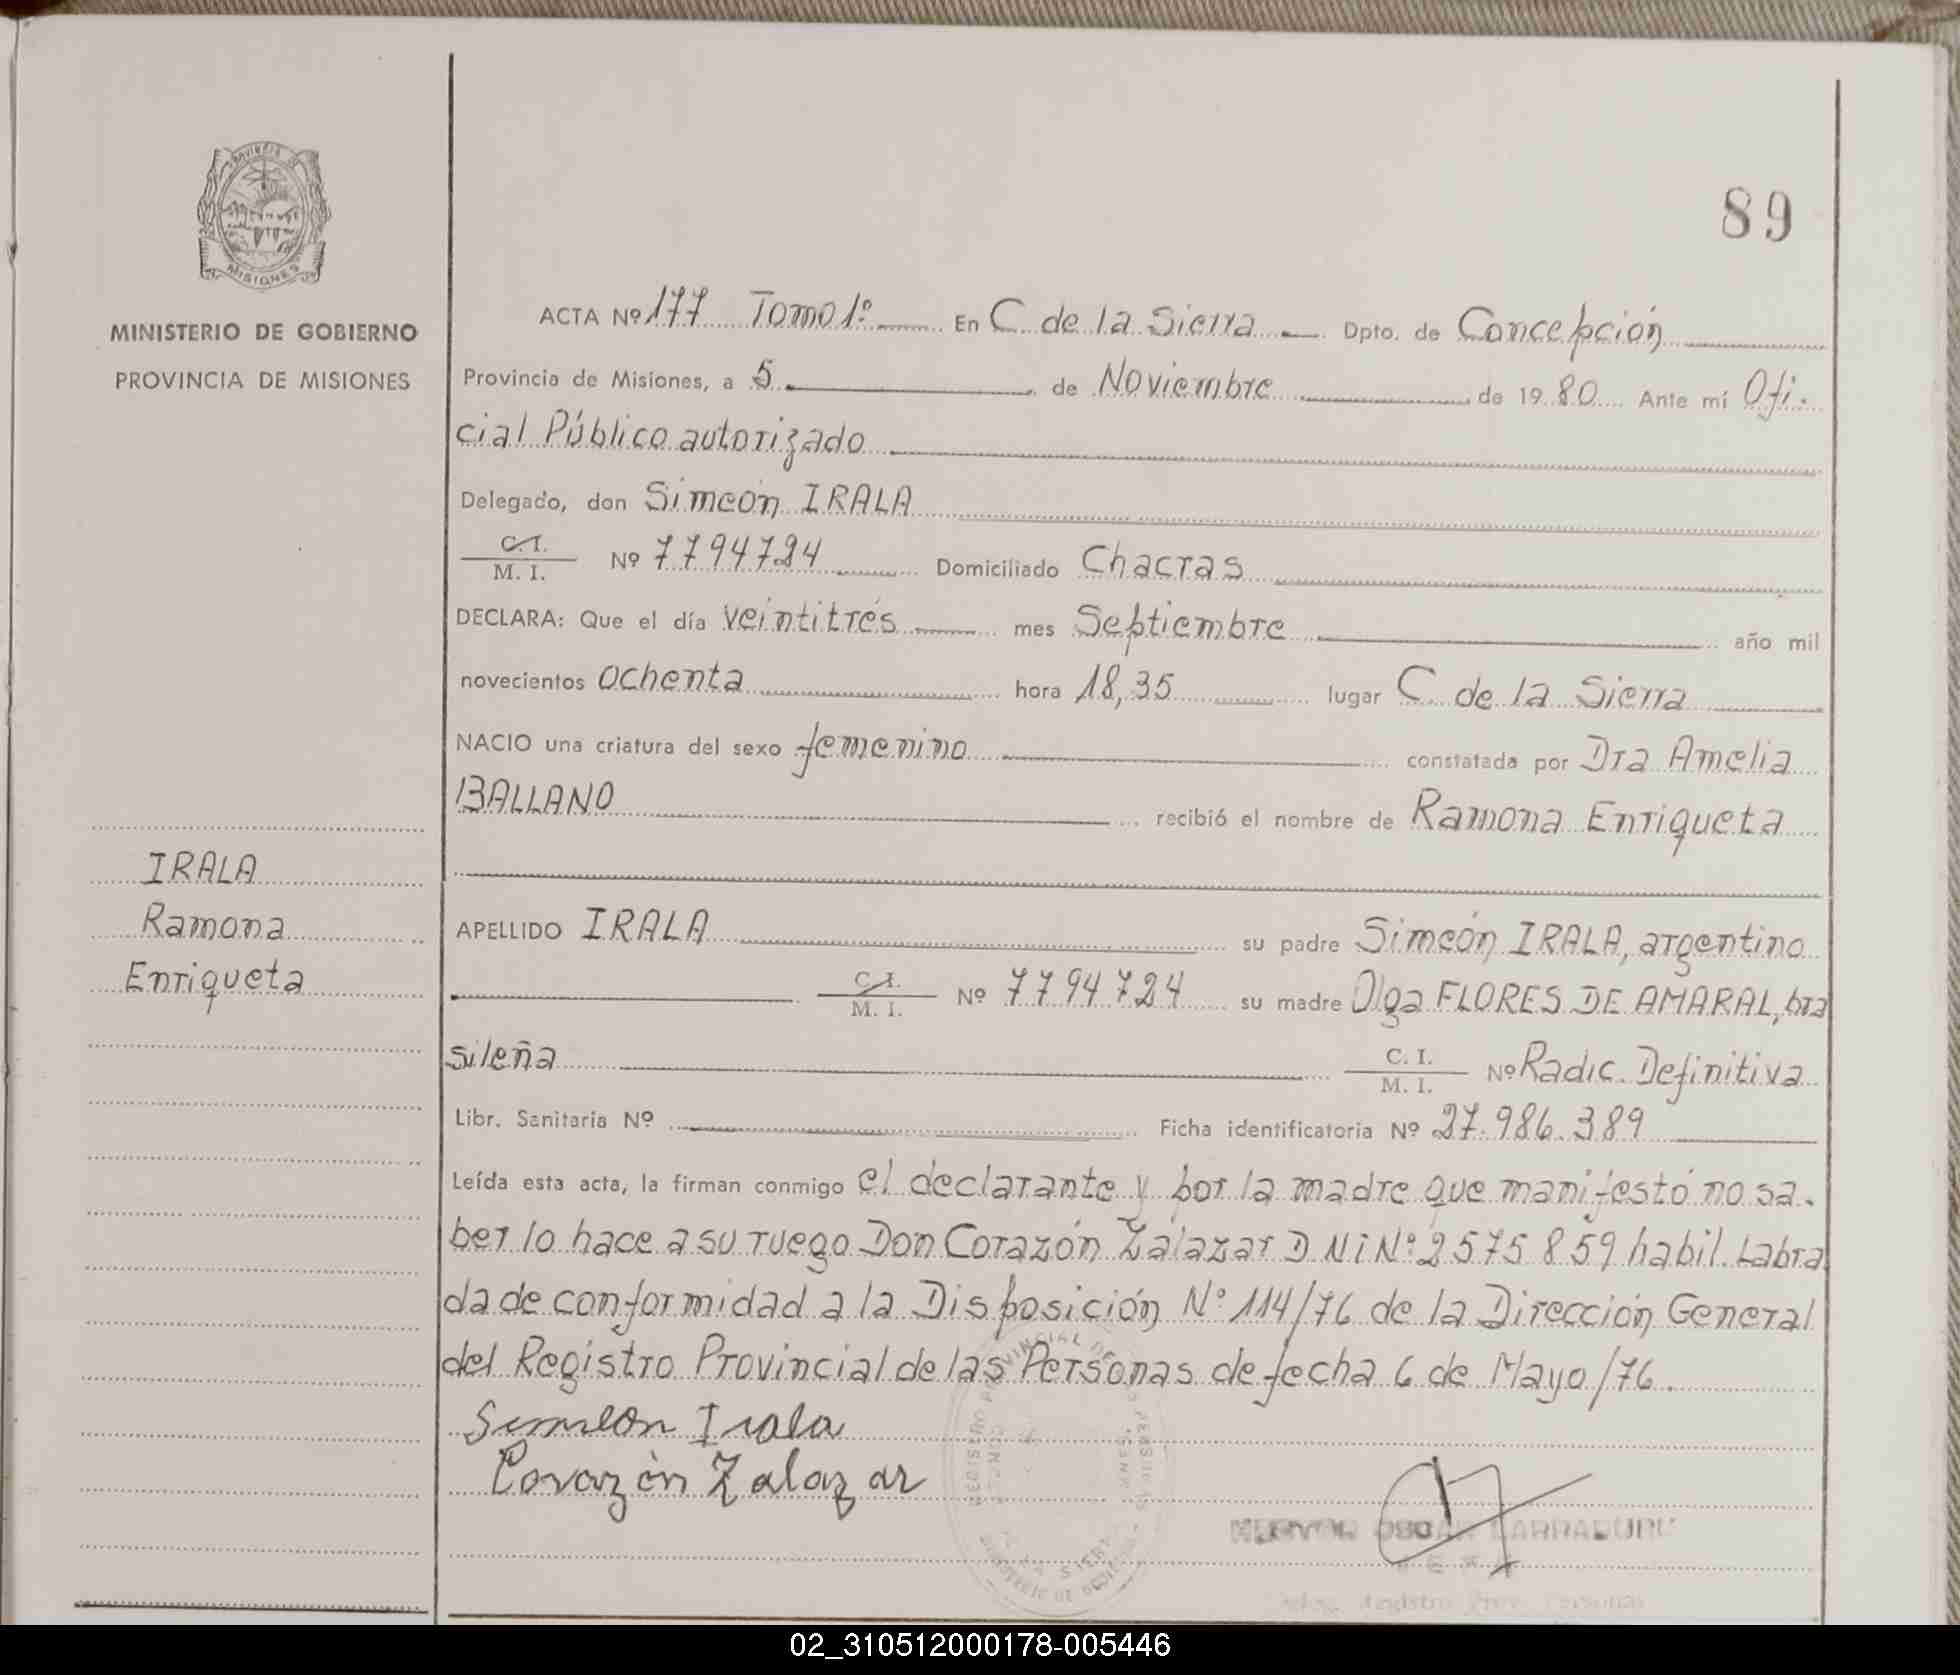 PROVINCIA
MISIONES
MINISTERIO DE GOBIERNO
PROVINCIA DE MISIONES
IRALA
Ramona
Enriqueta
89
ACTA Nº 177 Tomo 1º En C. de la Sierra Dpto. de Concepción
Provincia de Misiones, a 5 de Noviembre de 1980 Ante mí Ofi-
cial Público autorizado
Delegado, don Simeón IRALA
C.I.
M. I. Nº 7794724 Domiciliado Chacras
DECLARA: Que el día veintitrés mes Septiembre año mil
novecientos ochenta hora 18,35 lugar C. de la Sierra
NACIO una criatura del sexo femenino constatada por Dra Amelia
BALLANO recibió el nombre de Ramona Enriqueta
APELLIDO IRALA su padre Simeón IRALA, argentino
C.I.
M. I. Nº 7794724 su madre Olga FLORES DE AMARAL, bra
sileña C. I.
M. I. Nº Radic. Definitiva
Libr. Sanitaria Nº Ficha identificatoria Nº 27.986.389
Leída esta acta, la firman conmigo el declarante y por la madre que manifestó no sa-
ber lo hace a su ruego Don Corazón Zalazar D Ni Nº 2575859 habil. Labra
da de conformidad a la Disposición Nº 114/76 de la Dirección General
del Registro Provincial de las Personas de fecha 6 de Mayo/76.
Simeón Irala
Corazón Zalazar
OSCAR
Registro Prov. Personas
02_310512000178-005446